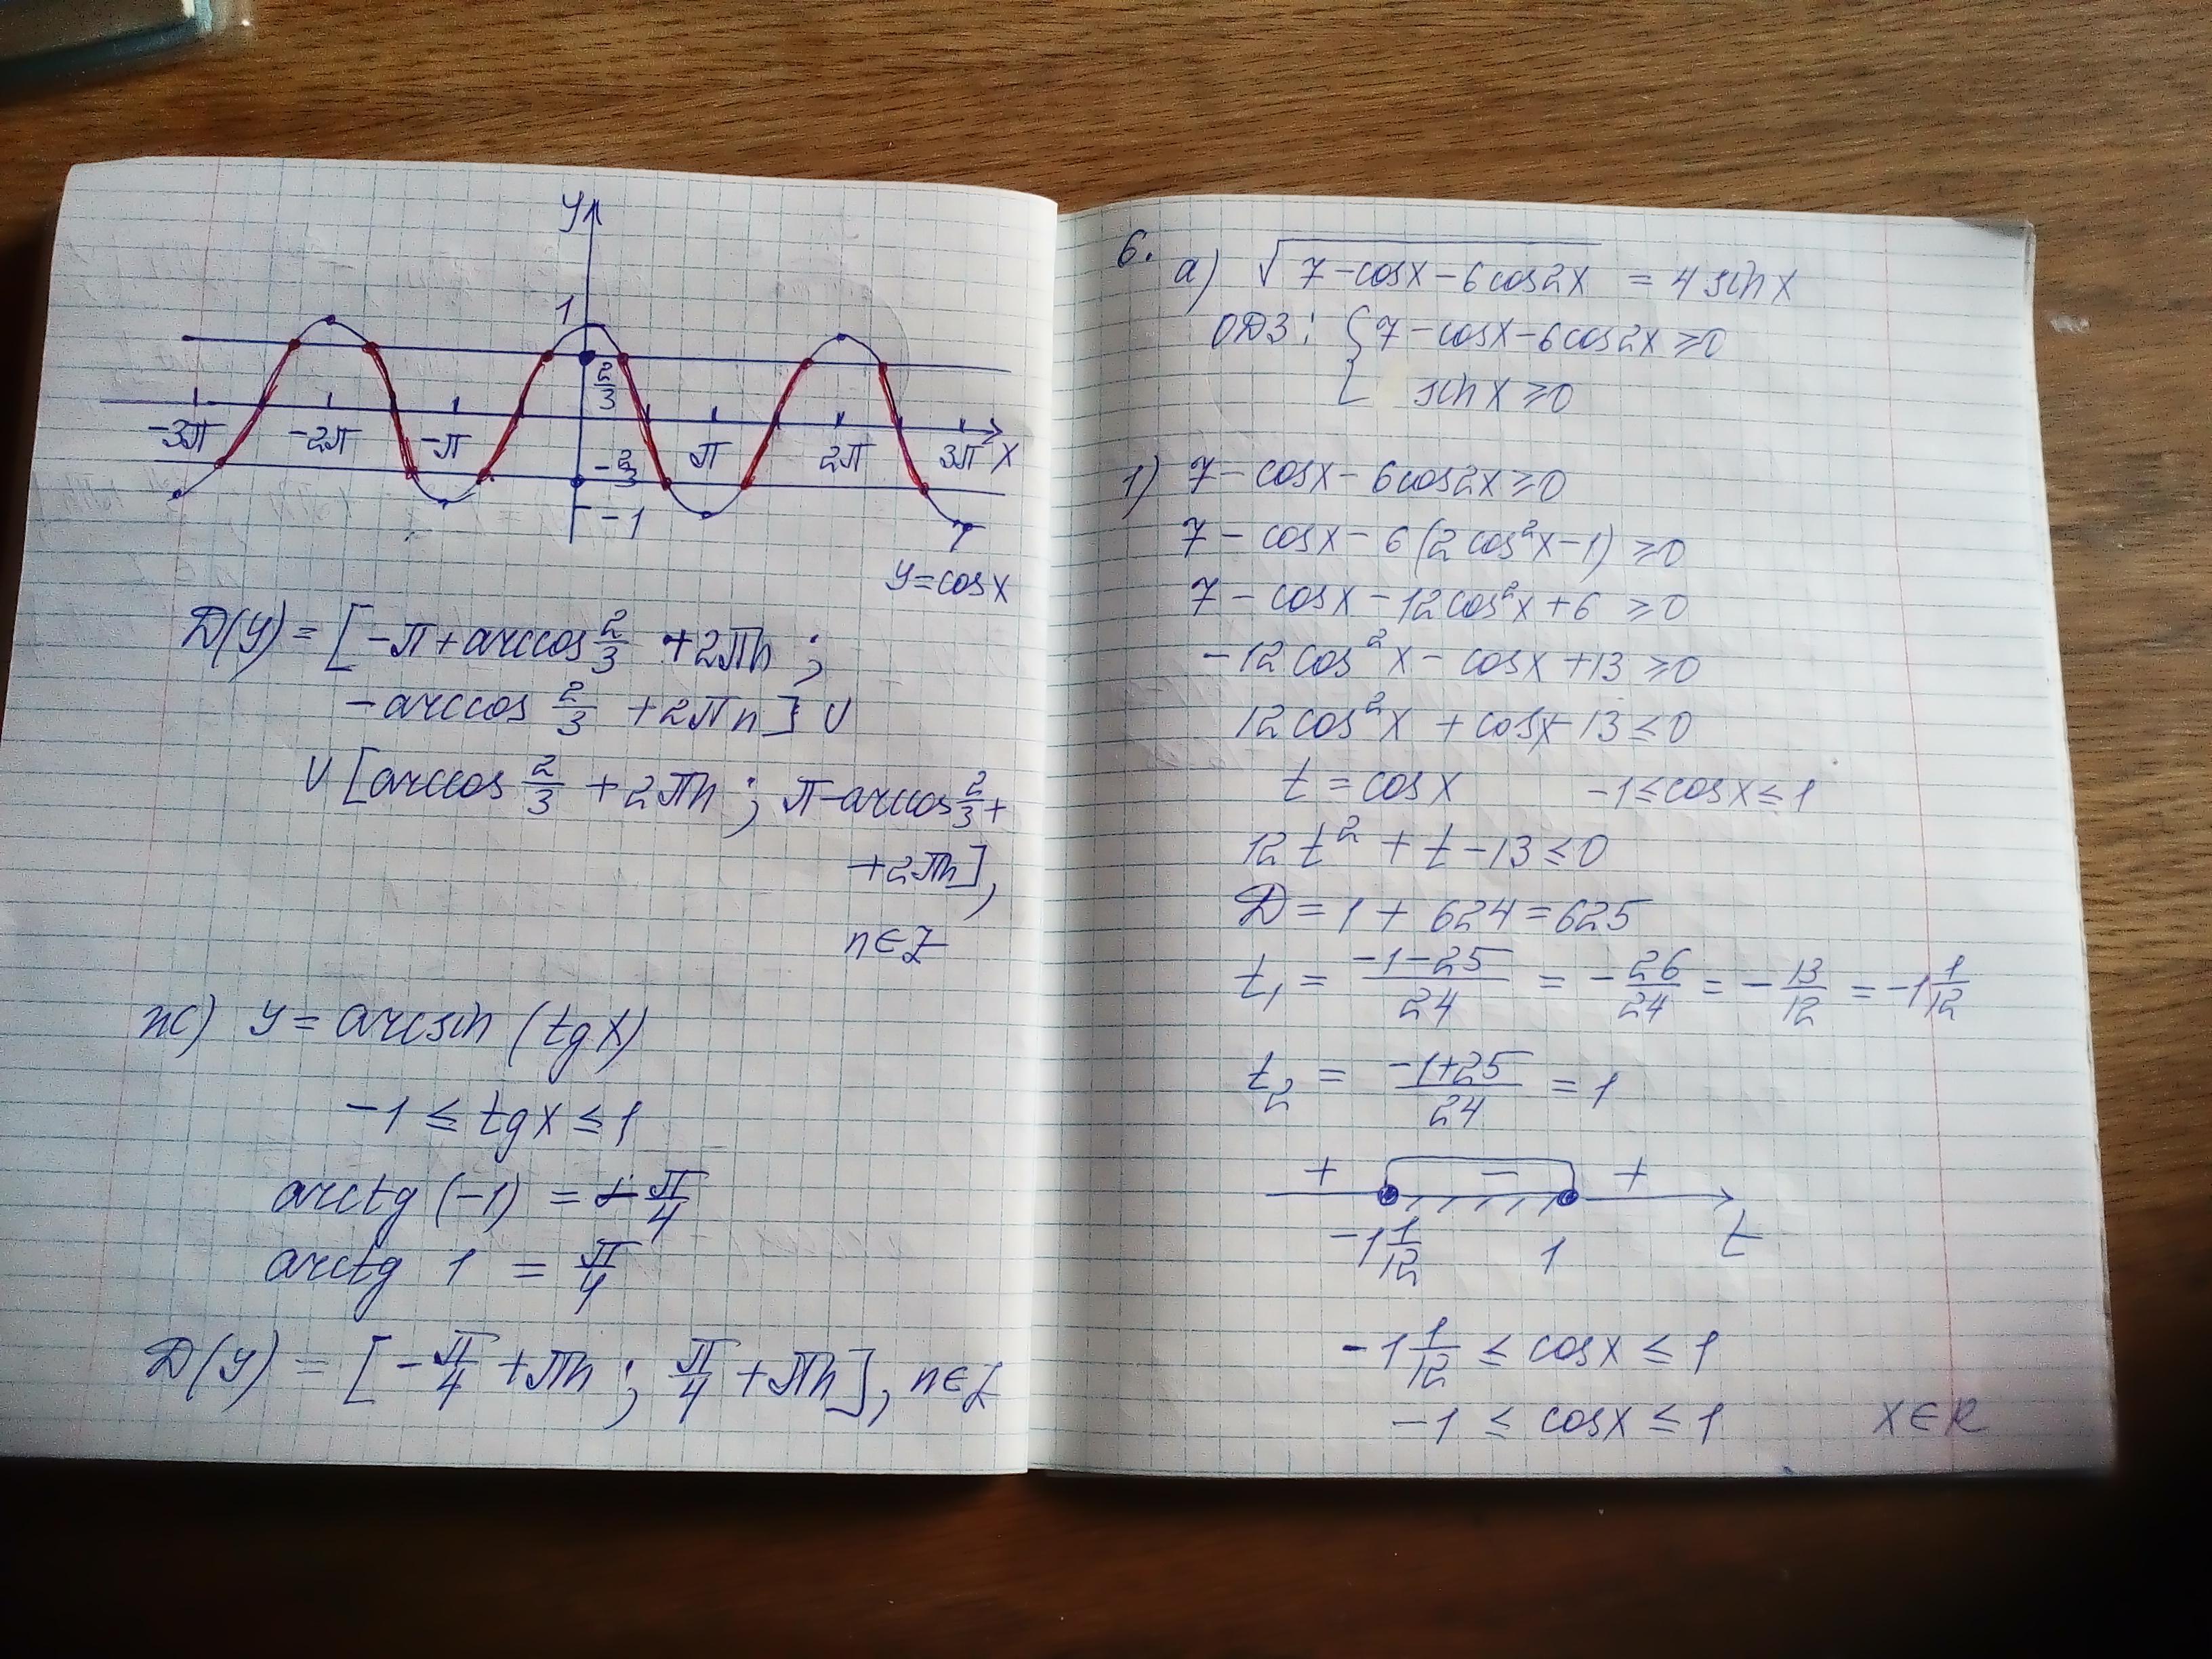 y
1
2/3
-3π -2π -π π 2π 3π x
-2/3
-1
y=cosx
D(y) = [-π+arccos 2/3 +2πn ;
-arccos 2/3 +2πn] ∪
∪ [arccos 2/3 +2πn ; π-arccos 2/3 +
+2πn],
n∈Z
ж) y = arcsin (tgx)
-1 ≤ tgx ≤ 1
arctg (-1) = -π/4
arctg 1 = π/4
D(y) = [-π/4 +πn ; π/4 +πn], n∈Z
6.
а) √(7-cosx-6cos2x) = 4 sinx
ОДЗ: { 7-cosx-6cos2x ≥0
sinx ≥0
1) 7-cosx-6cos2x ≥0
7-cosx-6(2cos²x-1) ≥0
7-cosx-12cos²x+6 ≥0
-12cos²x-cosx+13 ≥0
12cos²x +cosx-13 ≤0
t = cosx -1≤cosx≤1
12t²+t-13≤0
D = 1 + 624 = 625
t₁ = (-1-25)/24 = -26/24 = -13/12 = -1 1/12
t₂ = (-1+25)/24 = 1
+ - +
-1 1/12 1 t
-1 1/12 ≤ cosx ≤ 1
-1 ≤ cosx ≤ 1 x∈R